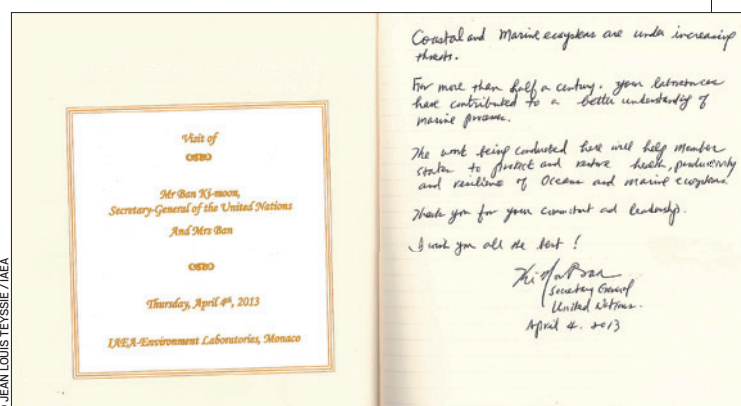 Visit of
Mr Ban Ki-moon,
Secretary-General of the United Nations
And Mrs Ban
Thursday, April 4th, 2013
IAEA-Environment Laboratories, Monaco
Coastal and Marine ecosystems are under increasing
threats.
For more than half a century, your laboratories
have contributed to a better understanding of
marine process.
The work being conducted here will help member
states to protect and restore health, productivity
and resilience of Oceans and marine ecosystems.
Thank you for your commitment and leadership.
I wish you all the best!
Ki Moon Ban
Secretary General
United Nations.
April 4. 2013
JEAN LOUIS TEYSSIE / IAEA